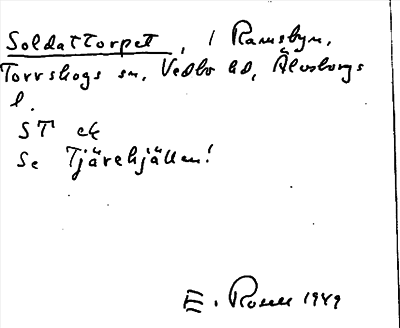 Soldattorpet, 1 Ramsbyn,
Torrskogs sn, Vedbo hd, Älvsborgs
l.
ST ek
Se Tjärekjällan!
E. Rosell 1949